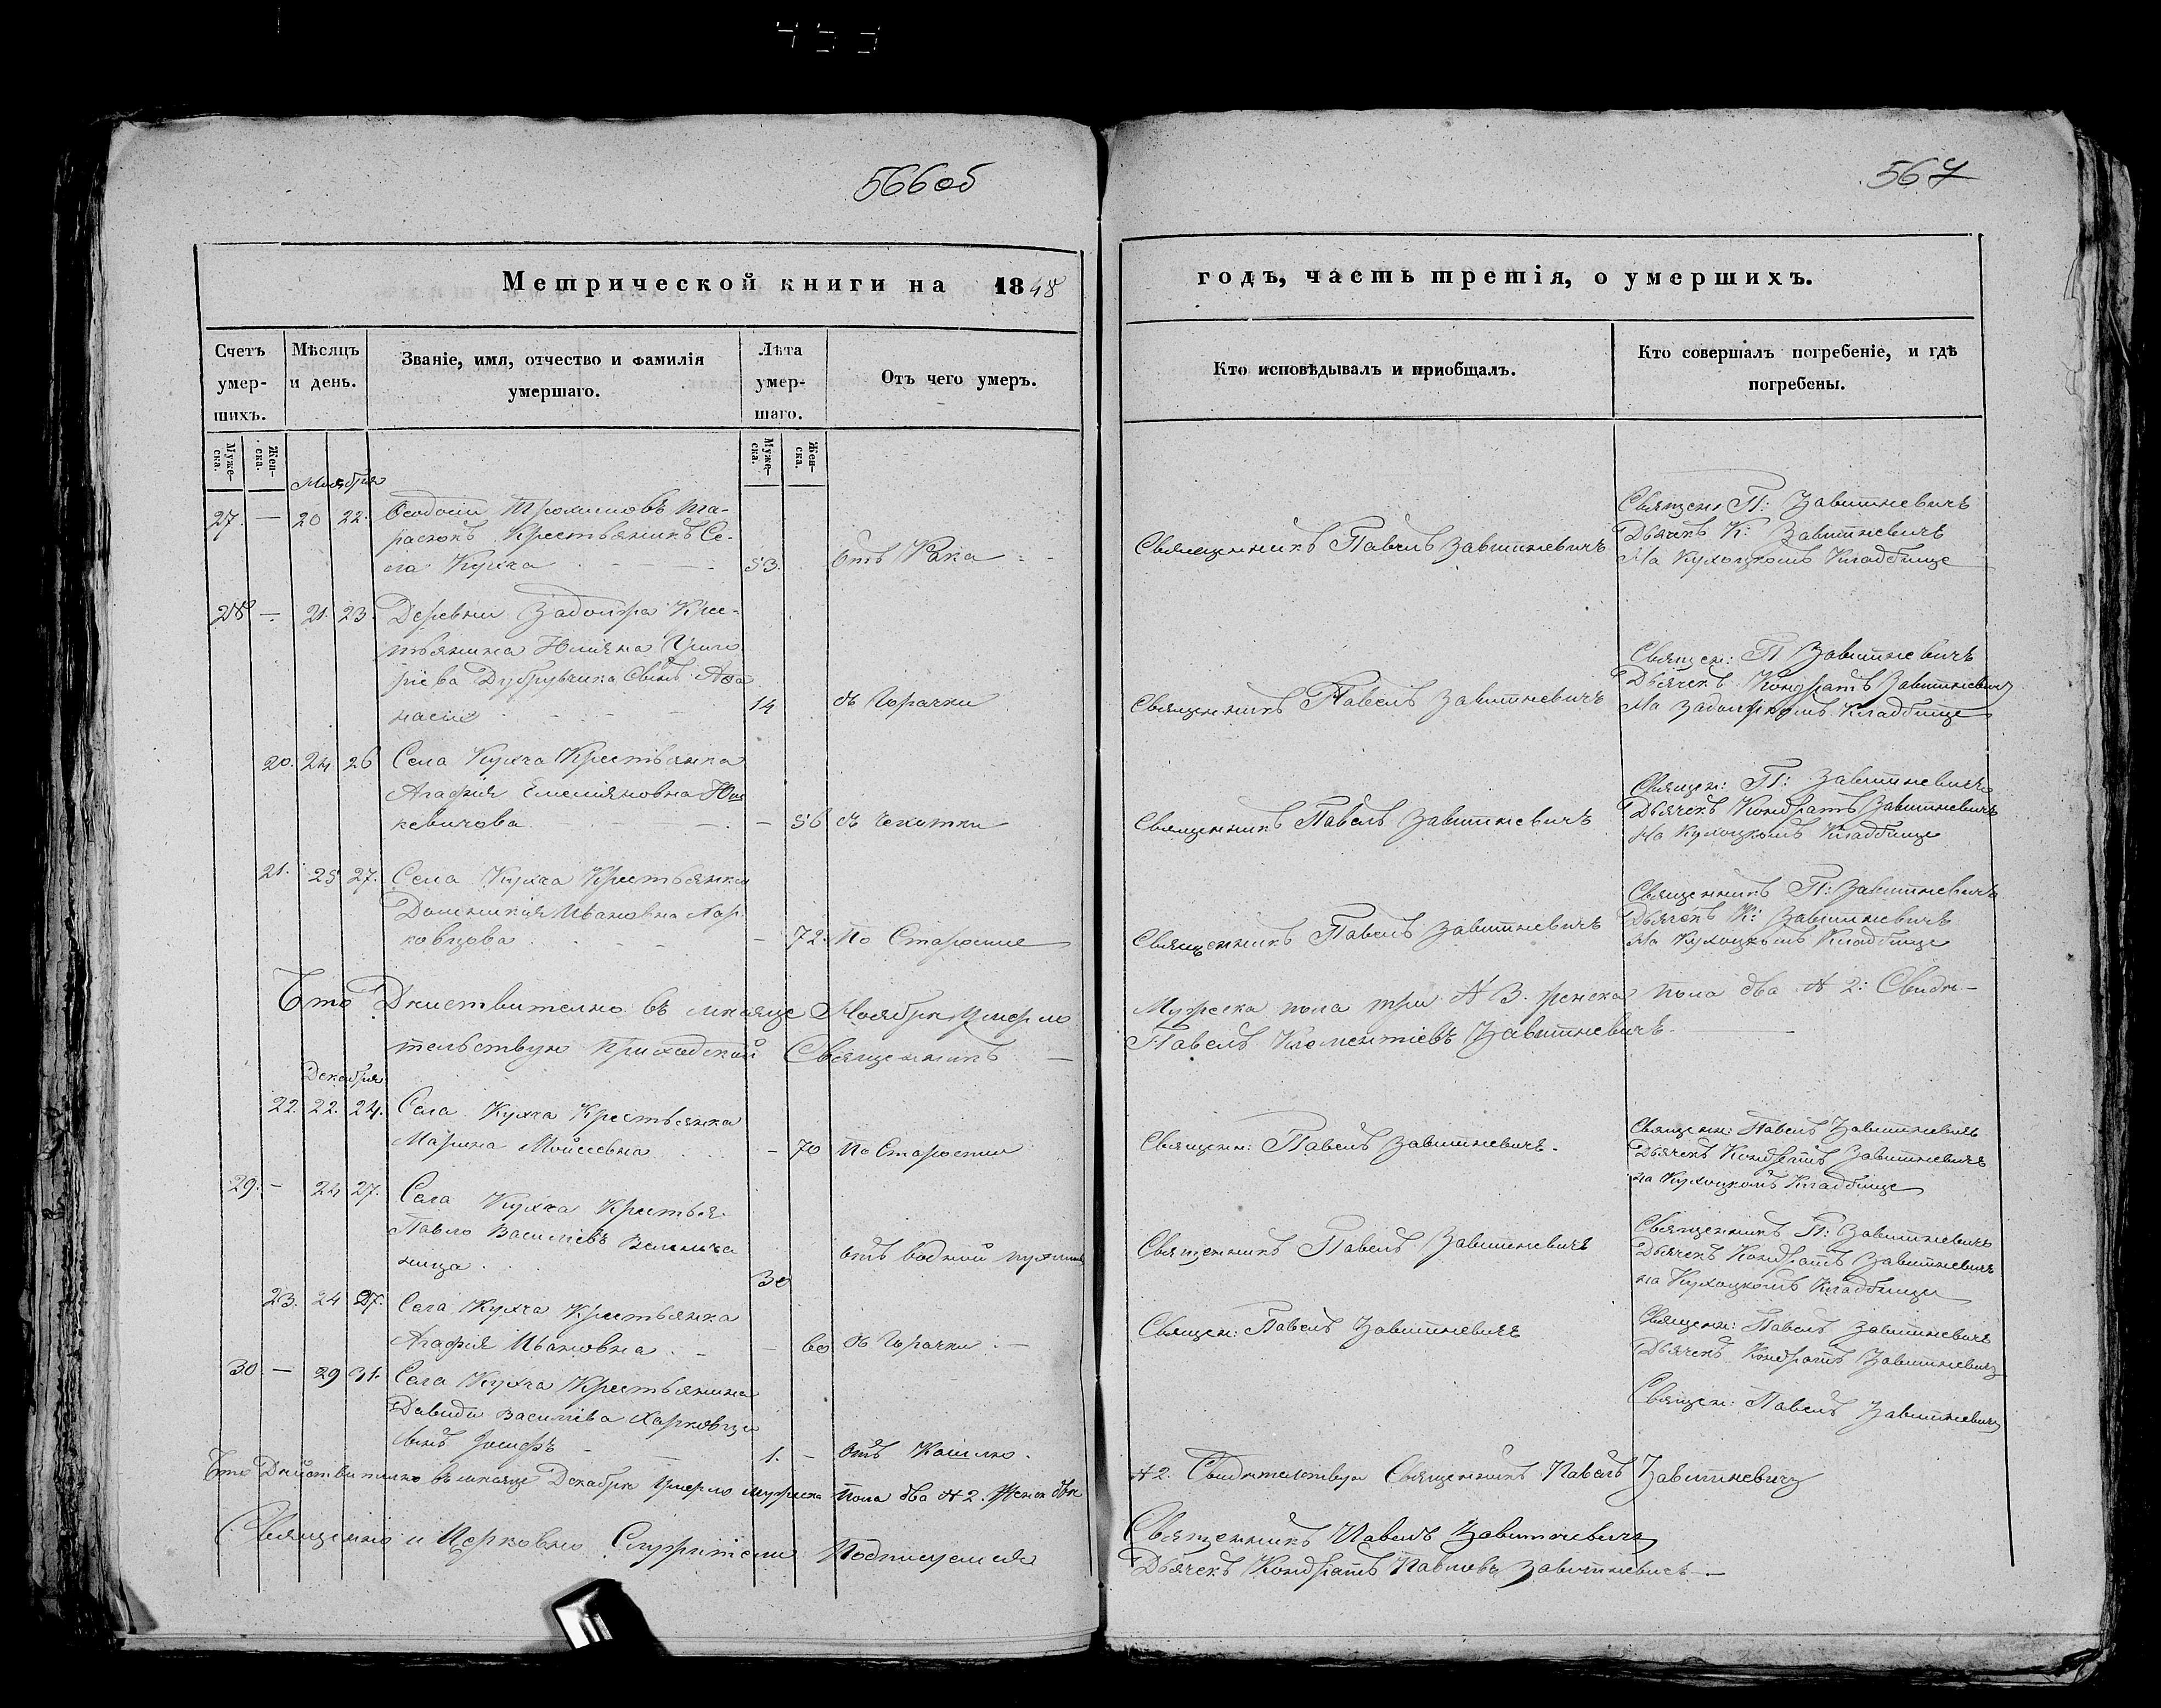 566 об
567
Метрической книги на 1848
годъ, часть третія, о умершихъ.
Счетъ умер-шихъ.
Мѣсяцъ и день.
Званіе, имя, отчество и фамилія умершаго.
Лѣта умер-шаго.
Отъ чего умеръ.
Кто исповѣдывалъ и приобщалъ.
Кто совершалъ погребеніе, и гдѣ погребены.
Муже-ска.
Жен-ска.
Муже-ска.
Жен-ска.
Ноября
27. — 20 22. Феодосій Трохимовъ Та-
расюкъ Крестьянинъ Се-
ла Кухча 53. Отъ Рака
Священникъ Павелъ Завитневичъ
Священ: П: Завитневичъ
Дьячекъ К: Завитневичъ
На Кухоцкомъ Кладбище
28 — 21. 23. Деревни Задолжа Крес-
тьянина Юліяна Григо
рієва Дубрувчика Сынъ Афа
насій 14 съ Горячки
Священникъ Павелъ Завитневичъ
Священ: П Завитневичъ
Дьячекъ Кондратъ Завитневичъ
На Кладбище
20. 24 26 Села Кухча Крестьянка
Агафія Емеліяновна
кевичова — 56 съ чехотки
Священникъ Павелъ Завитневичъ
Священ: П: Завитневичъ
Дьячекъ Кондратъ Завитневичъ
На Кухоцкомъ Кладбище
21. 25 27. Села Кухча Крестьянка
Домникія Ивановна Хар
ковцова — 72. По Старости
Священникъ Павелъ Завитневичъ
Священникъ П: Завитневичъ
Дьячекъ К: Завитневичъ
На Кухоцкомъ Кладбище
Что Дѣйствително въ мѣсяце Ноябрѣ Умерло Мужеска пола три № 3. женска пола два № 2: Свидѣ-
тельствую Приходскій Священникъ — Павелъ Климентіевъ Завитневичъ.
Декабря
22. 22. 24. Села Кухча Крестьянка
Марина Мойсеевна — 70 По Старости
Священ: Павелъ Завитневичъ.
Священ: Павелъ Завитневичъ
Дьячекъ Кондратъ Завитневичъ
на Кухоцкомъ Кладбище
29. — 24 27. Села Кухча Крестья.
Павло Василіевъ
ница 30 отъ водной пухлины
Священникъ Павелъ Завитневичъ
Священникъ П: Завитневичъ
Дьячекъ Кондратъ Завитневичъ
на Кухоцкомъ Кладбище
23. 24 27. Села Кухча Крестьянка
Агафія Ивановна — 60 съ Горячки
Священ: Павелъ Завитневичъ
Священ: Павелъ Завитневичъ
Дьячекъ Кондратъ Завитневичъ
30 — 29 31. Села Кухча Крестьянина
Давида Василіева Харковца
Сынъ Іосифъ 1. — Отъ Кашлю.
Священ: Павелъ Завитневичъ
Что Дѣйствително въ мѣсяце Декабрѣ Умерло Мужеска Пола два № 2. Женск двѣ № 2. Свидѣтелствую Священникъ Павелъ Завитневичъ
Священно и Церковно Служители Подписуемся
Священникъ Павелъ Завитневичъ
Дьячекъ Кондратъ Павловъ Завитневичъ